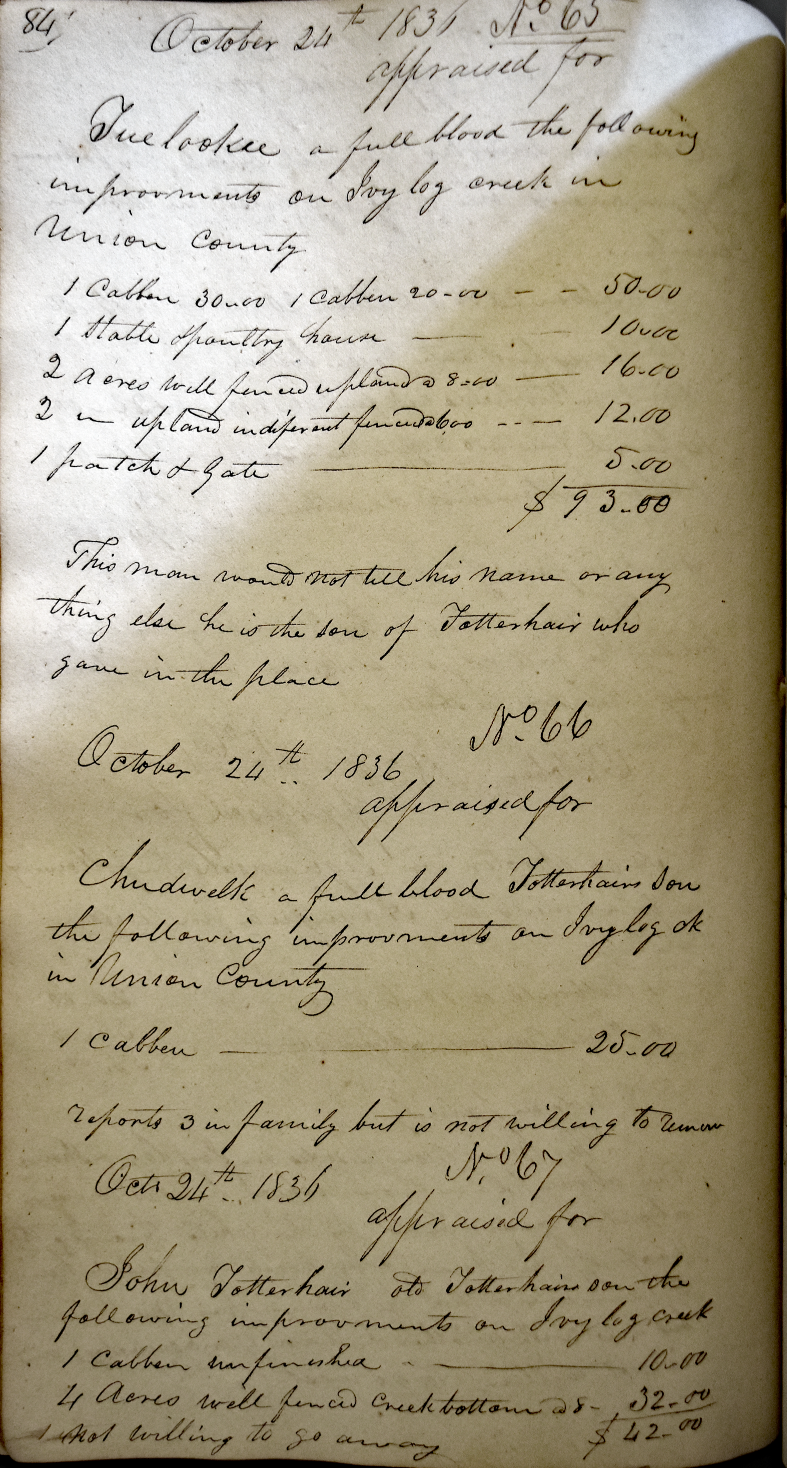 84
October 24th 1836 No 65
appraised for
Tuelookee a full blood the following
improvments on Ivy log creek in
Union County
1 Cabben 30-00 1 cabben 20-00 - - 50-00
1 Stable & poultry house — 10-00
2 Acres well fenced upland @ 8-00 — 16-00
2 " upland indiferent fenced @ 600 --- 12.00
1 patch & Gate — 5-00
$ 93-00
This man would not tell his name or any
thing else he is the son of Totterhair who
gave in the place
No 66
October 24th 1836
appraised for
Chudwelk a full blood Totterhairs son
the following improvments on Ivylog ck
in Union County
1 Cabben — 25-00
reports 3 in family but is not willing to remove
No 67
Octr 24th 1836
appraised for
John Totterhair old Totterhairs son the
following improvments on Ivy log creek
1 Cabben unfinished - — 10-00
4 Acres well fenced creek bottom @ 8- 32-00
not willing to go away $ 42-00